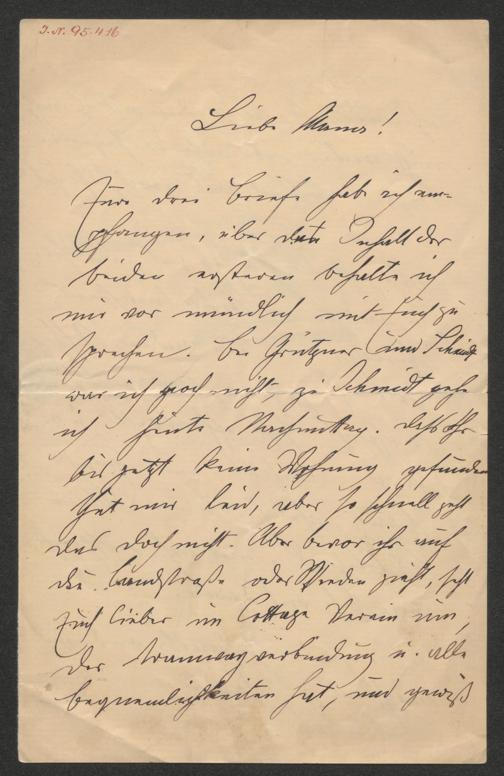 J.N. 95.416
Liebe Mama!
Eure drei Briefe hab ich em-
pfangen, über den Inhalt der
beiden ersteren behalte ich
mir vor mündlich mit Euch zu
sprechen. Bei Grützner und Schmidt
war ich noch nicht, zu Schmidt gehe
ich heute Nachmittag. Daß Ihr
bis jetzt keine Wohnung gefunden
thut mir leid, aber so schnell geht
das doch nicht. Aber bevor ihr auf
die Landstraße oder Wieden zieht, seht
Euch lieber im Cottage Verein um,
der Tramwayverbindung u. alle
Bequemlichkeiten hat, und gewiß